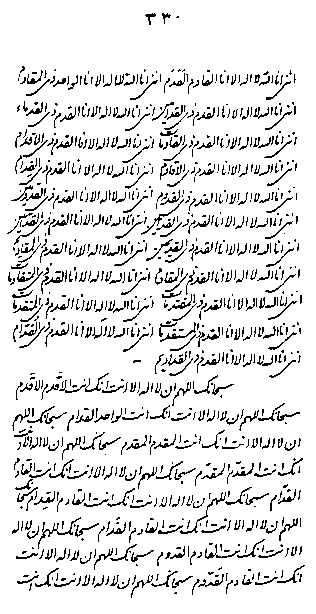 ٣٣٠
اننی انا الله لا اله الا انا القادم القدم اننی انا الله لا اله الا انا الواحد ذی المقادم
اننی انا الله لا اله الا انا القدم ذی اننی انا الله لا اله الا انا القدم ذی القدماء
اننی انا الله لا اله الا انا القدم ذی اننی انا الله لا اله الا انا القدم ذی الاقدام
اننی انا الله لا اله الا انا القدم ذی اننی انا الله لا اله الا انا القدم ذی
اننی انا الله لا اله الا انا القدم ذی اننی انا الله لا اله الا انا القدم ذی
اننی انا الله لا اله الا انا القدم ذی اننی انا الله لا اله الا انا القدم ذی
اننی انا الله لا اله الا انا القدم ذی اننی انا الله لا اله الا انا القدم ذی
اننی انا الله لا اله الا انا القدم ذی اننی انا الله لا اله الا انا القدم ذی
اننی انا الله لا اله الا انا القدم ذی اننی انا الله لا اله الا انا القدم ذی
اننی انا الله لا اله الا انا القدم ذی اننی انا الله لا اله الا انا القدم ذی القدام
اننی انا الله لا اله الا انا القدم ذی القدادیم
سبحانک اللهم ان لا اله الا انت انک انت الاقدم الاقدم
سبحانک اللهم ان لا اله الا انت انک انت الواحد القدام سبحانک اللهم
ان لا اله الا انت انک انت المقدم المقدم سبحانک اللهم ان لا اله الا انت
انک انت المقدم المقدم سبحانک اللهم ان لا اله الا انت انک انت القادم
القدام سبحانک اللهم ان لا اله الا انت انک انت القادم القیدام سبحانک
اللهم ان لا اله الا انت انک انت القادم القدام سبحانک اللهم ان لا اله
الا انت انک انت القادم القدوم سبحانک اللهم ان لا اله الا انت
انک انت القادم القدوم سبحانک اللهم ان لا اله الا انت انک انت